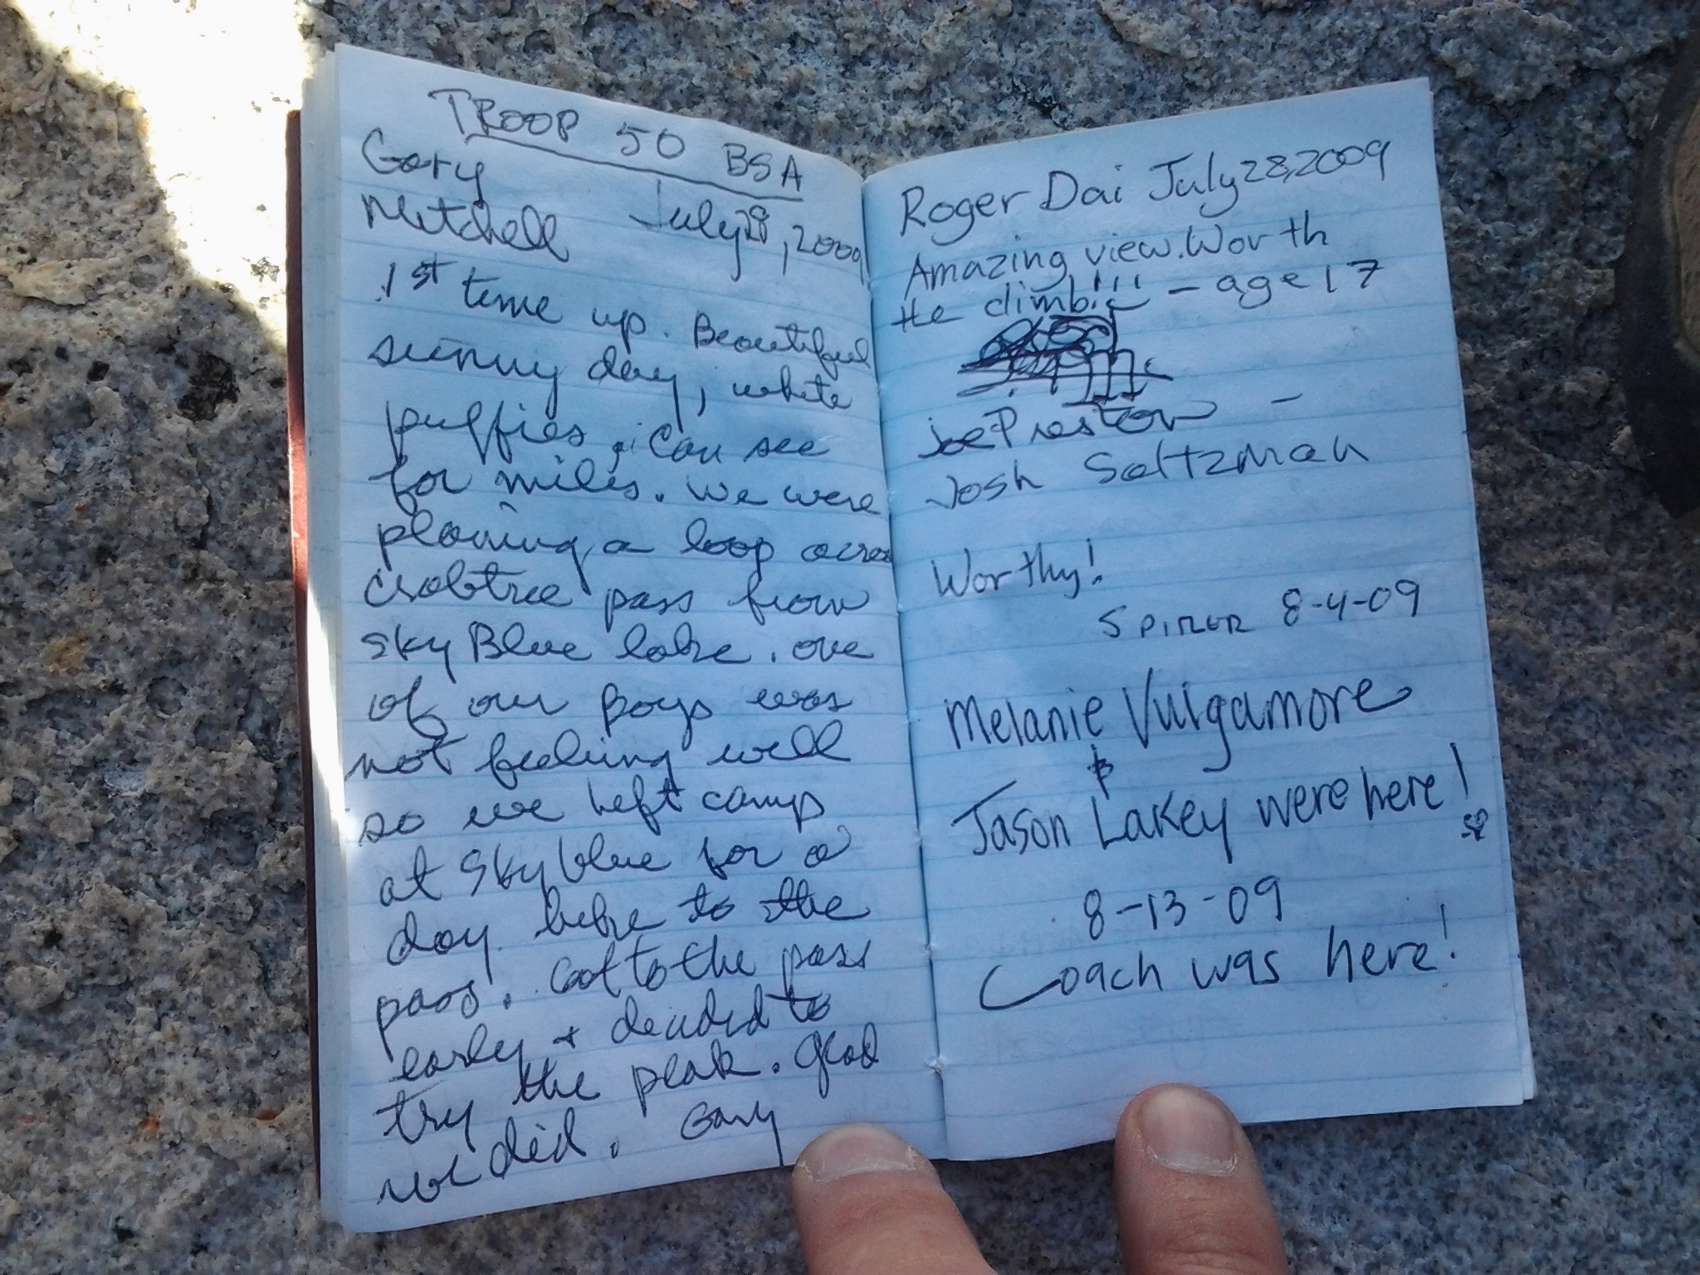 TROOP 50 BSA
Gary
Mitchell July 28, 2009
1st time up. Beautiful
sunny day, white
puffies. Can see
for miles. We were
planing a loop across
crabtree pass from
sky Blue lake. one
of our boys was
not feeling well
so we left camp
at Sky blue for a
day hike to the
pass. Got to the pass
early + decided to
try the peak. Glad
we did. Gary
Roger Dai July 28, 2009
Amazing view. Worth
the climb!!! - age 17
joe Preston -
Josh Saltzman
Worthy!
8-4-09
Melanie Vulgamore
&
Jason Lakey were here!
8-13-09
Coach was here!